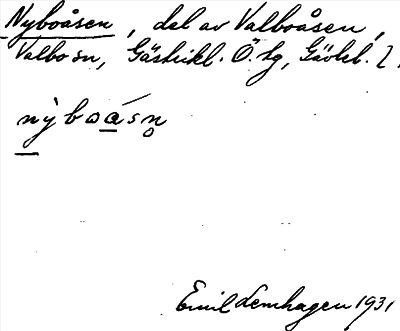 Nyboåsen, del av Valboåsen,
Valbo sn, Gästrikl. Ö. tg, Gävleb. l.
nỳboá̲sn̥
Emil Lemhagen 1931